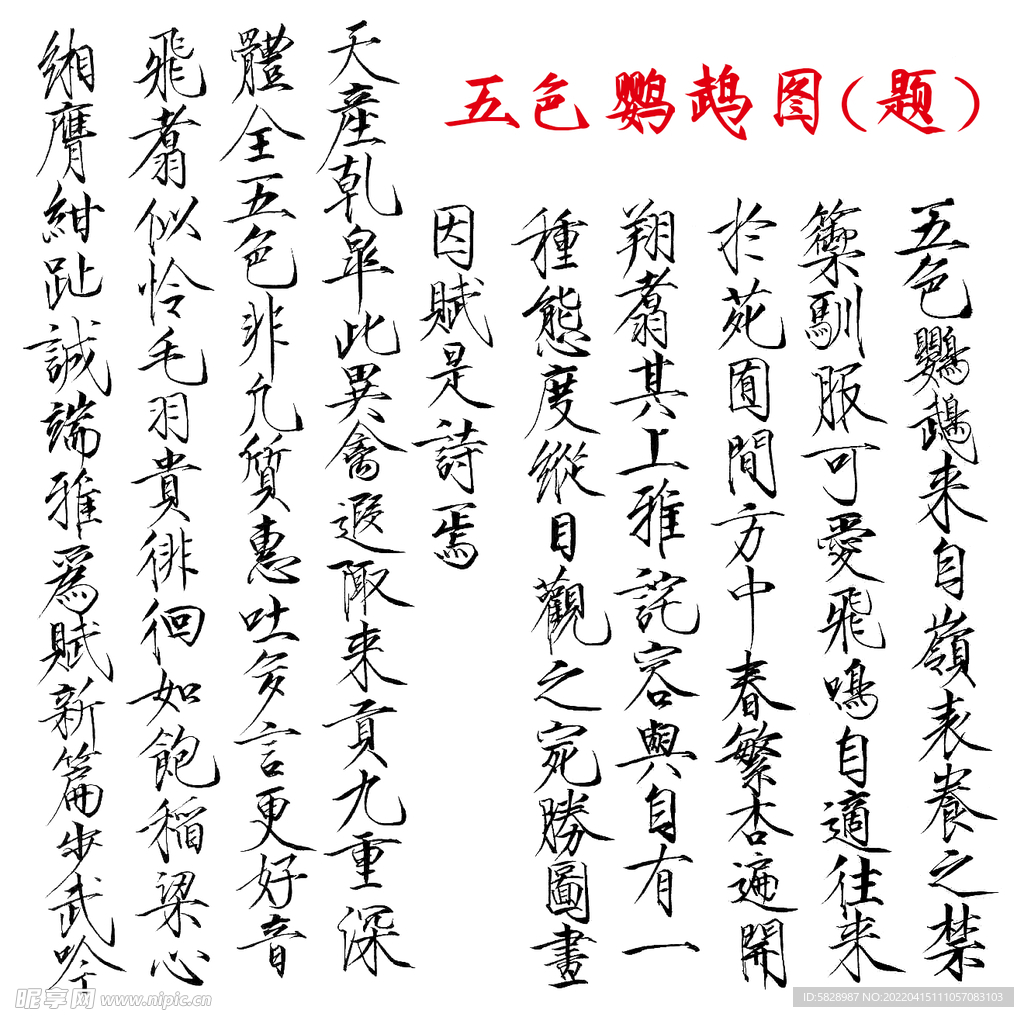 五色鹦鹉图(题)
五色鸚鵡来自嶺表養之禁
籞馴服可愛飛鳴自適往来
於苑囿間方中春繁杏遍開
翔翥其上雅詫容與自有一
種態度縱目觀之宛勝圖畫
因賦是詩焉
天產乾皐此異禽遐陬来貢九重深
體全五色非凡質惠吐多言更好音
飛翥似怜毛羽貴徘徊如飽稻粱心
緗膺紺趾誠端雅爲賦新篇步武吟
昵享网 www.nipic.cn
ID:5828987 NO:20220415111057083103